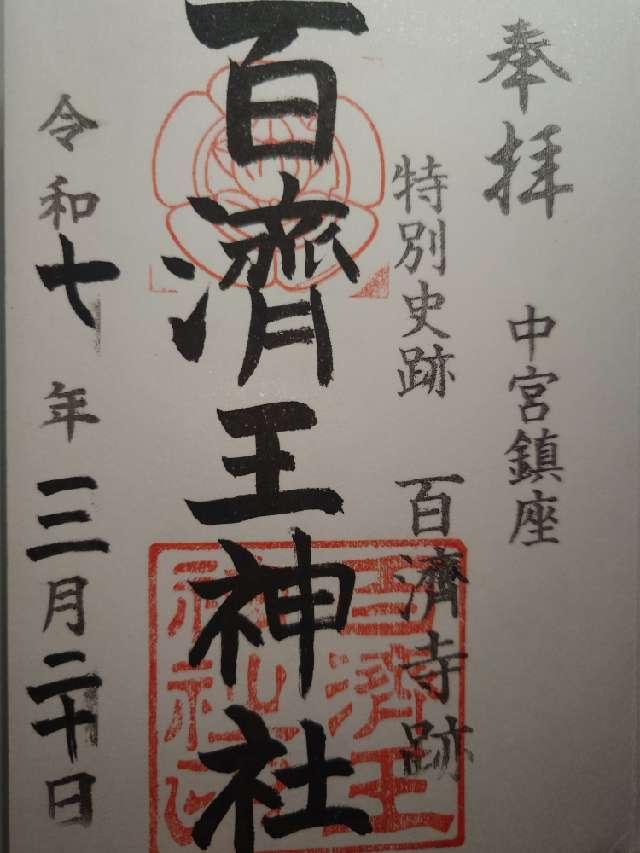 奉拝
中宮鎮座
特別史跡 百濟寺跡
百濟王神社
令和七年三月二十日